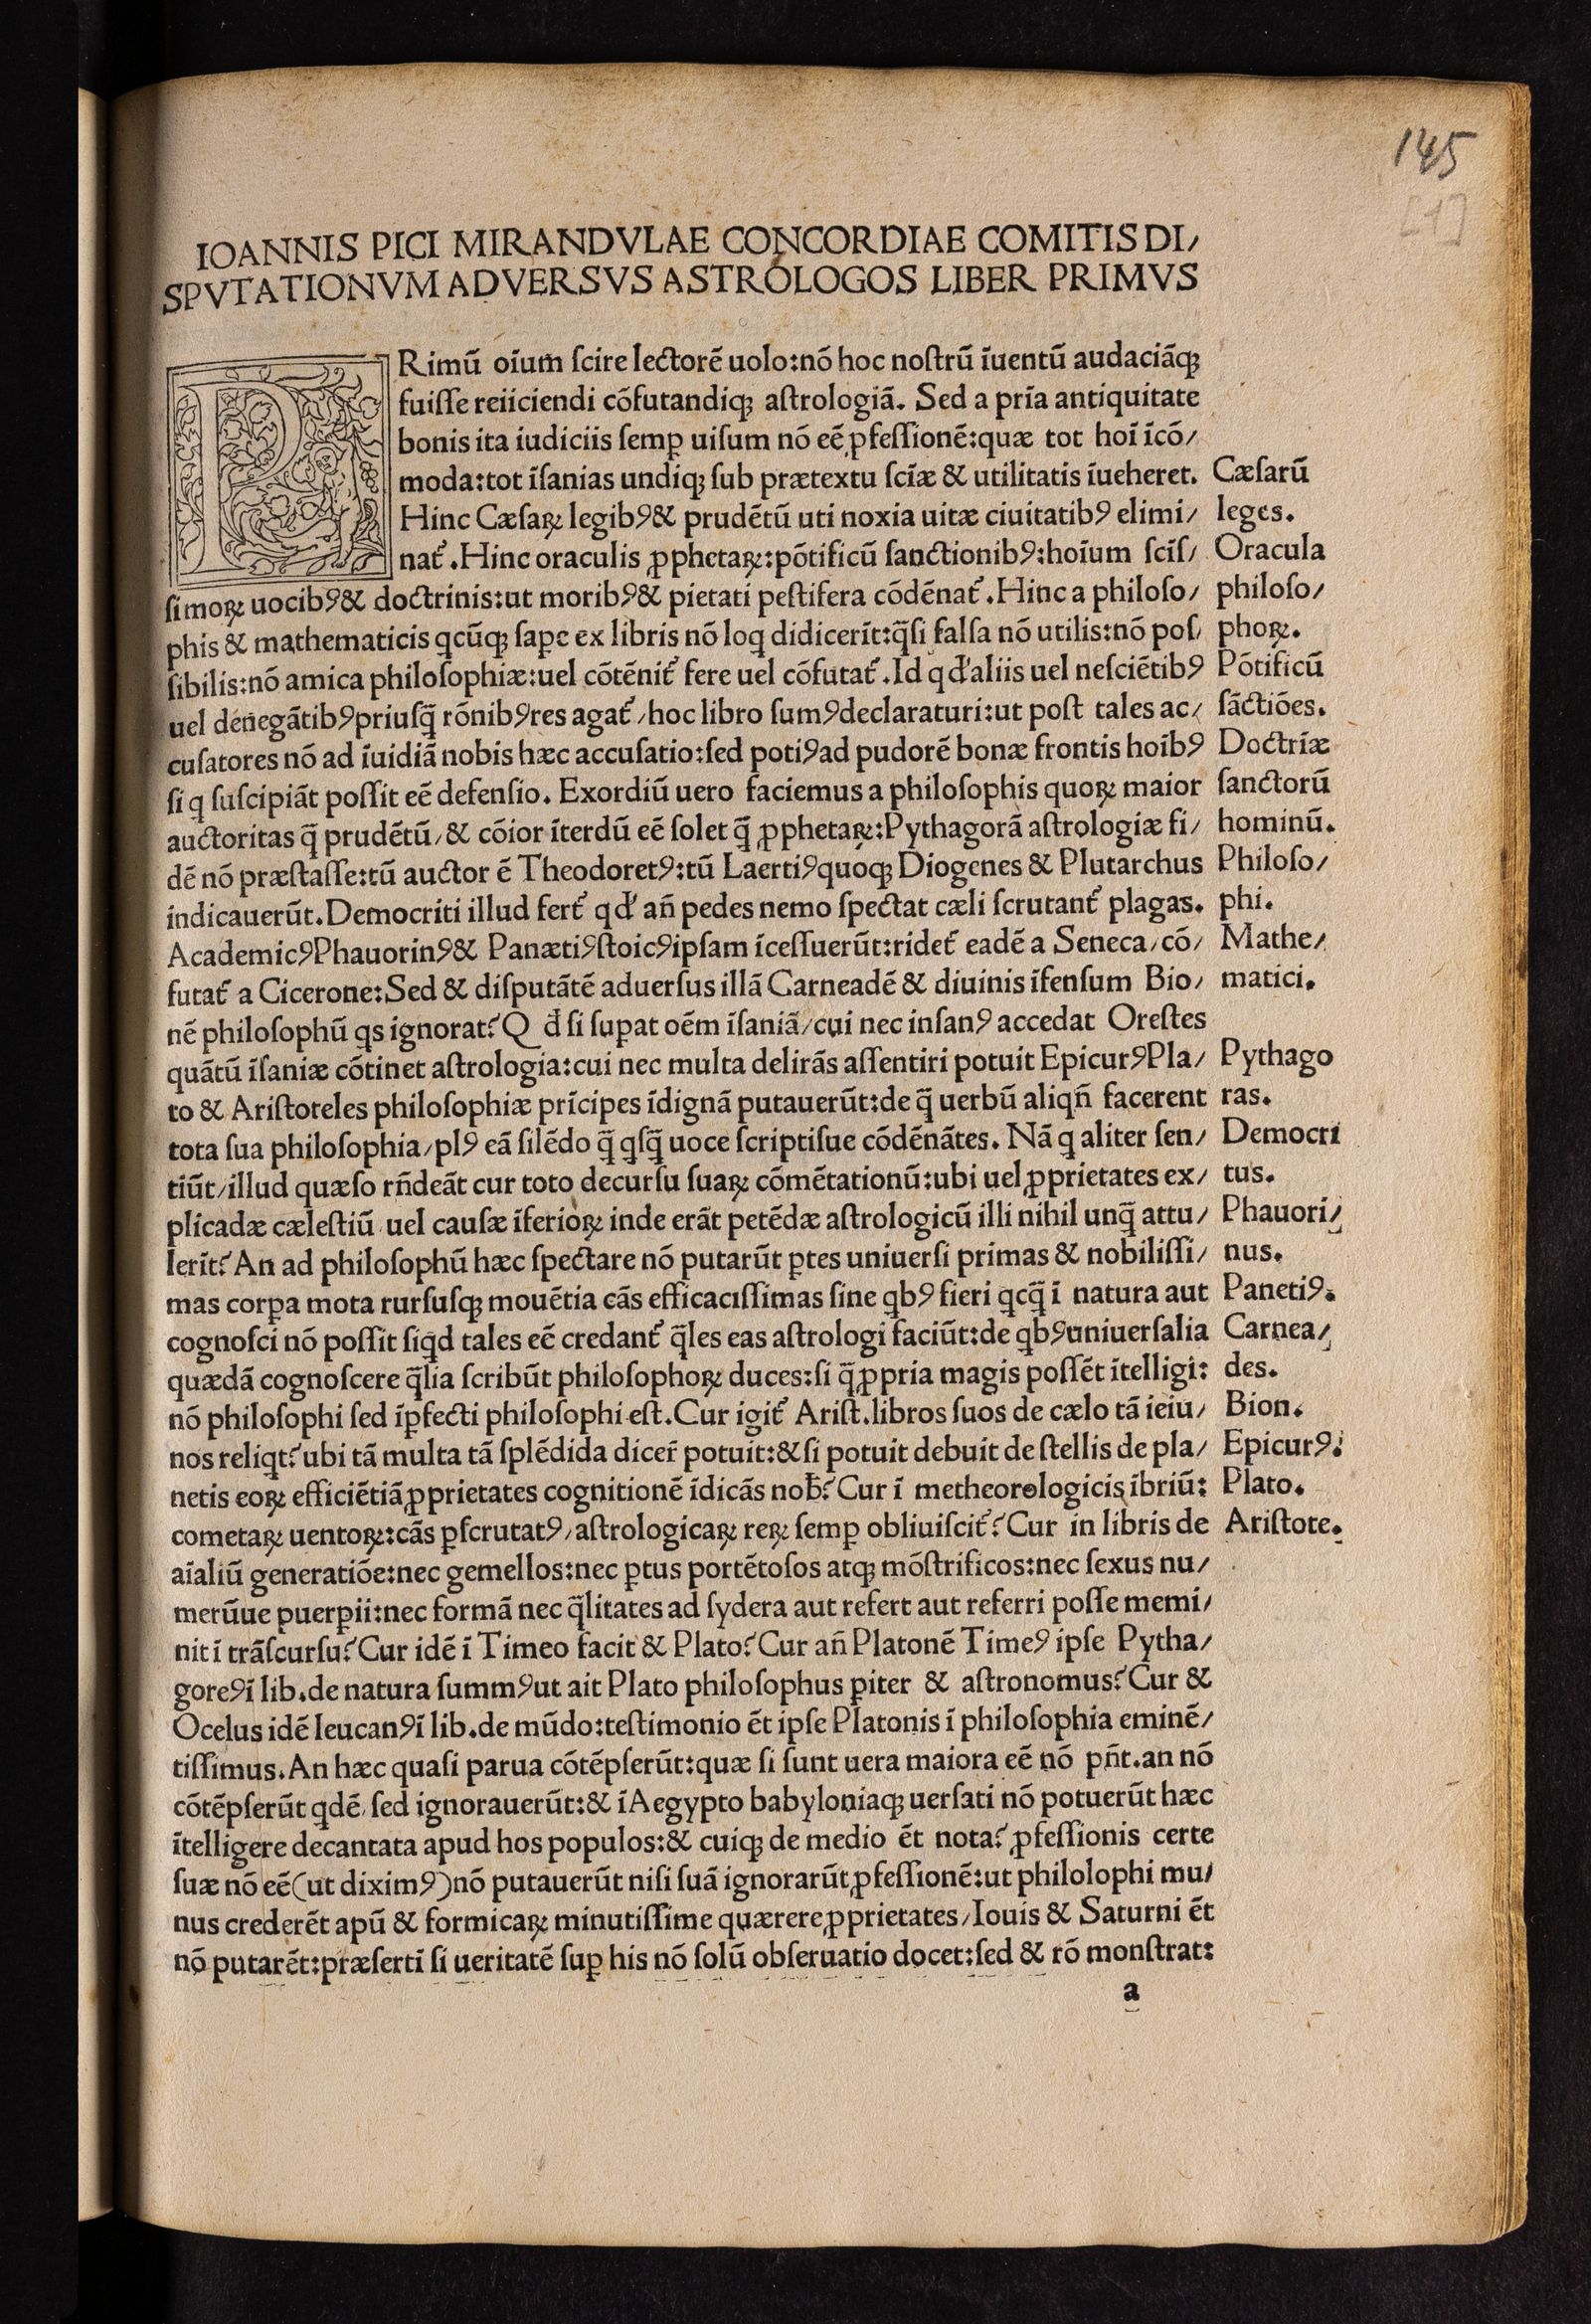 145
[1]
IOANNIS PICI MIRANDVLAE CONCORDIAE COMITIS DI/
SPVTATIONVM ADVERSVS ASTROLOGOS LIBER PRIMVS
PRimũ oĩum ſcire lectorẽ uolo:nõ hoc noſtrũ ĩuentũ audaciãqꝫ
fuiſſe reiiciendi cõfutandiqꝫ aſtrologiã. Sed a prĩa antiquitate
bonis ita iudiciis ſemꝑ uiſum nõ eẽ ꝓfeſſionẽ:quæ tot hoĩ ĩcõ/
moda:tot ĩſanias undiqꝫ ſub prætextu ſcĩæ & utilitatis ĩueheret.
Hinc Cæſaꝝ legibꝰ& prudẽtũ uti noxia uitæ ciuitatibꝰ elimi/
nat᷑.Hinc oraculis ꝓphetaꝝ:põtificũ ſanctionibꝰ:hoĩum ſcĩſ/
ſimoꝝ uocibꝰ& doctrinis:ut moribꝰ& pietati peſtifera cõdẽnat᷑.Hinc a philoſo/
phis & mathematicis qcũqꝫ ſape ex libris nõ loq didicerĩt:q̃ſi falſa nõ utilis:nõ poſ/
ſibilis:nõ amica philoſophiæ:uel cõtẽnit᷑ fere uel cõfutat᷑.Id qđ aliis uel neſciẽtibꝰ
uel denegãtibꝰpriuſq̃ rõnibꝰres agat᷑/hoc libro ſumꝰdeclaraturi:ut poſt tales ac/
cuſatores nõ ad ĩuidiã nobis hæc accuſatio:ſed potiꝰad pudorẽ bonæ frontis hoĩbꝰ
ſi q ſuſcipiãt poſſit eẽ defenſio. Exordiũ uero faciemus a philoſophis quoꝝ maior
auctoritas q̃ prudẽtũ/& cõior ĩterdũ eẽ ſolet q̃ ꝓphetaꝝ:Pythagorã aſtrologiæ fi/
dẽ nõ præſtaſſe:tũ auctor ẽ Theodoretꝰ:tũ Laertiꝰquoqꝫ Diogenes & Plutarchus
indicauerũt.Democriti illud fert᷑ qđ añ pedes nemo ſpectat cæli ſcrutant᷑ plagas.
AcademicꝰPhauorinꝰ& Panætiꝰſtoicꝰipſam ĩceſſuerũt:ridet᷑ eadẽ a Seneca/cõ/
futat᷑ a Cicerone:Sed & diſputãtẽ aduerſus illã Carneadẽ & diuinis ĩfenſum Bio/
nẽ philoſophũ qs ignorat? Q đ ſi ſuꝑat oẽm ĩſaniã/cui nec inſanꝰ accedat Oreſtes
quãtũ ĩſaniæ cõtinet aſtrologia:cui nec multa delirãs aſſentiri potuit EpicurꝰPla/
to & Ariſtoteles philoſophiæ prĩcipes ĩdignã putauerũt:de q̃ uerbũ aliqñ facerent
tota ſua philoſophia/plꝰ eã ſilẽdo q̃ qſq̃ uoce ſcriptiſue cõdẽnãtes. Nã q aliter ſen/
tiũt/illud quæſo rñdeãt cur toto decurſu ſuaꝝ cõmẽtationũ:ubi uel ꝓprietates ex/
plicadæ cæleſtiũ uel cauſæ ĩferioꝝ inde erãt petẽdæ aſtrologicũ illi nihil unq̃ attu/
lerĩt? An ad philoſophũ hæc ſpectare nõ putarũt ꝑtes uniuerſi primas & nobiliſſi/
mas corꝑa mota rurſuſqꝫ mouẽtia cãs efficaciſſimas ſine qbꝰ fieri qcq̃ ĩ natura aut
cognoſci nõ poſſit ſiqd tales eẽ credant᷑ q̃les eas aſtrologi faciũt:de qbꝰuniuerſalia
quædã cognoſcere q̃lia ſcribũt philoſophoꝝ duces:ſi q̃ ꝓpria magis poſſẽt ĩtelligi:
nõ philoſophi ſed ĩꝑfecti philoſophi eſt.Cur igit᷑ Ariſt.libros ſuos de cælo tã ieiu/
nos reliqt? ubi tã multa tã ſplẽdida dicer̃ potuit:&ſi potuit debuit de ſtellis de pla/
netis eoꝝ efficiẽtiã ꝓprietates cognitionẽ ĩdicãs nob̃? Cur ĩ metheorologicis ĩbriũ:
cometaꝝ uentoꝝ:cãs ꝑſcrutatꝰ/aſtrologicaꝝ reꝝ ſemꝑ obliuiſcit᷑? Cur in libris de
aĩaliũ generatiõe:nec gemellos:nec ꝑtus portẽtoſos atqꝫ mõſtrificos:nec ſexus nu/
merũue puerꝑii:nec formã nec q̃litates ad ſydera aut refert aut referri poſſe memi/
nit ĩ trãſcurſu? Cur idẽ ĩ Timeo facit & Plato? Cur añ Platonẽ Timeꝰ ipſe Pytha/
goreꝰĩ lib.de natura ſummꝰut ait Plato philoſophus ꝑiter & aſtronomus? Cur &
Ocelus idẽ leucanꝰĩ lib.de mũdo:teſtimonio ẽt ipſe Platonis ĩ philoſophia eminẽ/
tiſſimus.An hæc quaſi parua cõtẽpſerũt:quæ ſi ſunt uera maiora eẽ nõ pñt.an nõ
cõtẽpſerũt qdẽ ſed ignorauerũt:& ĩAegypto babyloniaqꝫ uerſati nõ potuerũt hæc
ĩtelligere decantata apud hos populos:& cuiqꝫ de medio ẽt nota? ꝓfeſſionis certe
ſuæ nõ eẽ(ut diximꝰ)nõ putauerũt niſi ſuã ignorarũt ꝓfeſſionẽ:ut philolophi mu/
nus crederẽt apũ & formicaꝝ minutiſſime quærere ꝓprietates/Iouis & Saturni ẽt
nõ putarẽt:præſertĩ ſi ueritatẽ ſuꝑ his nõ ſolũ obſeruatio docet:ſed & rõ monſtrat:
a
Cæſarũ
leges.
Oracula
philoſo/
phoꝝ.
Põtificũ
ſãctiões.
Doctrĩæ
ſanctorũ
hominũ.
Philoſo/
phi.
Mathe/
matici.
Pythago
ras.
Democri
tus.
Phauori/
nus.
Panetiꝰ.
Carnea/
des.
Bion.
Epicurꝰ.
Plato.
Ariſtote.